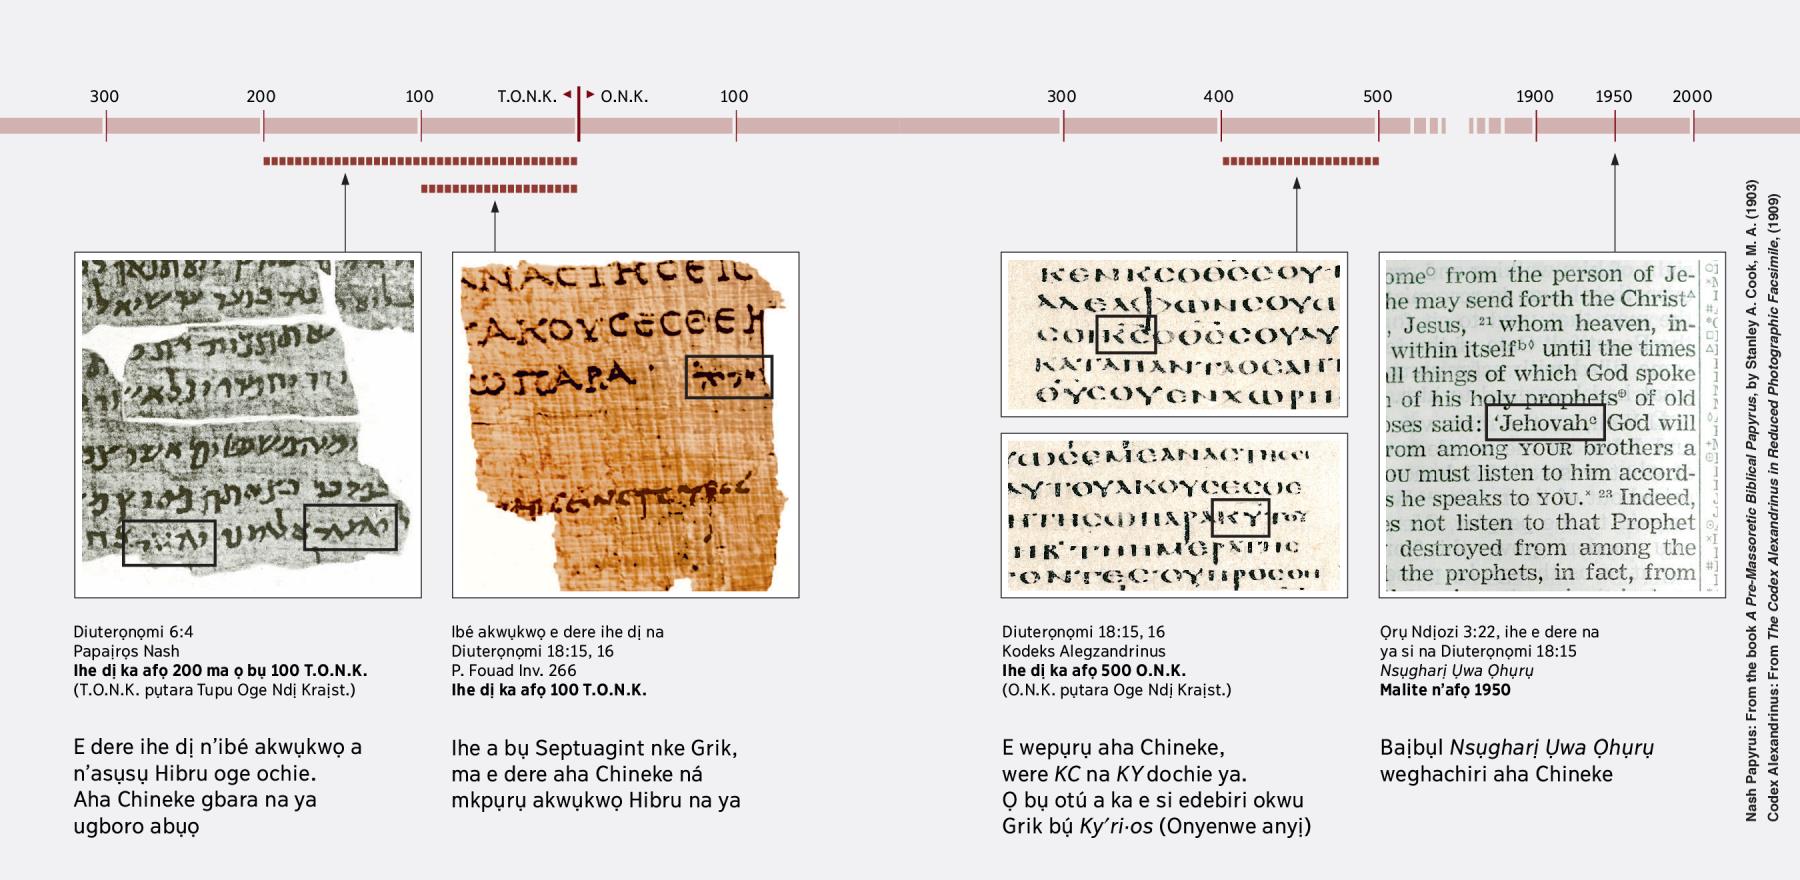 300 200 100 T.O.N.K. O.N.K. 100 300 400 500 1900 1950 2000
Diuterọnọmi 6:4
Papaịrọs Nash
Ihe dị ka afọ 200 ma ọ bụ 100 T.O.N.K.
(T.O.N.K. pụtara Tupu Oge Ndị Kraịst.)
E dere ihe dị n’ibé akwụkwọ a
n’asụsụ Hibru oge ochie.
Aha Chineke gbara na ya
ugboro abụọ
Ibé akwụkwọ e dere ihe dị na
Diuterọnọmi 18:15, 16
P. Fouad Inv. 266
Ihe dị ka afọ 100 T.O.N.K.
Ihe a bụ Septuagint nke Grik,
ma e dere aha Chineke ná
mkpụrụ akwụkwọ Hibru na ya
Diuterọnọmi 18:15, 16
Kodeks Alegzandrinus
Ihe dị ka afọ 500 O.N.K.
(O.N.K. pụtara Oge Ndị Kraịst.)
E wepụrụ aha Chineke,
were KC na KY dochie ya.
Ọ bụ otú a ka e si edebiri okwu
Grik bụ́ Ky′ri·os (Onyenwe anyị)
ome° from the person of Je-
he may send forth the Christ
, Jesus, ²¹ whom heaven, in-
within itself until the times
all things of which God spoke
of his holy prophets of old
oses said: ‘Jehovah God will
rom among YOUR brothers a
ou must listen to him accord-
s he speaks to YOU. ²³ Indeed,
es not listen to that Prophet
destroyed from among the
the prophets, in fact, from
Ọrụ Ndịozi 3:22, ihe e dere na
ya si na Diuterọnọmi 18:15
Nsụgharị Ụwa Ọhụrụ
Malite n’afọ 1950
Baịbụl Nsụgharị Ụwa Ọhụrụ
weghachiri aha Chineke
Nash Papyrus: From the book A Pre-Massoretic Biblical Papyrus, by Stanley A. Cook, M. A. (1903)
Codex Alexandrinus: From The Codex Alexandrinus in Reduced Photographic Facsimile, (1909)